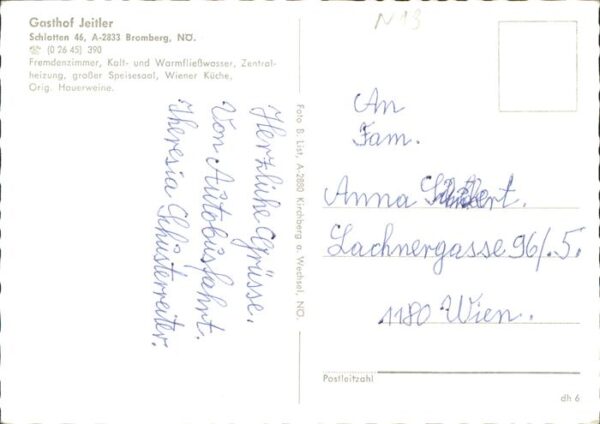 Gasthof Jeitler
Schlatten 46, A-2833 Bromberg, NÖ.
☎ (0 26 45) 390
Fremdenzimmer, Kalt- und Warmfließwasser, Zentral-
heizung, großer Speisesaal, Wiener Küche,
Orig. Hauerweine.
Herzliche Grüsse.
Von Autobusfahrt.
Theresia Schusterreiter.
Foto B. List, A-2880 Kirchberg a. Wechsel, NÖ.
N13
An
Fam.
Anna
Lachnergasse 96/.5.
1180 Wien.
Postleitzahl
dh 6